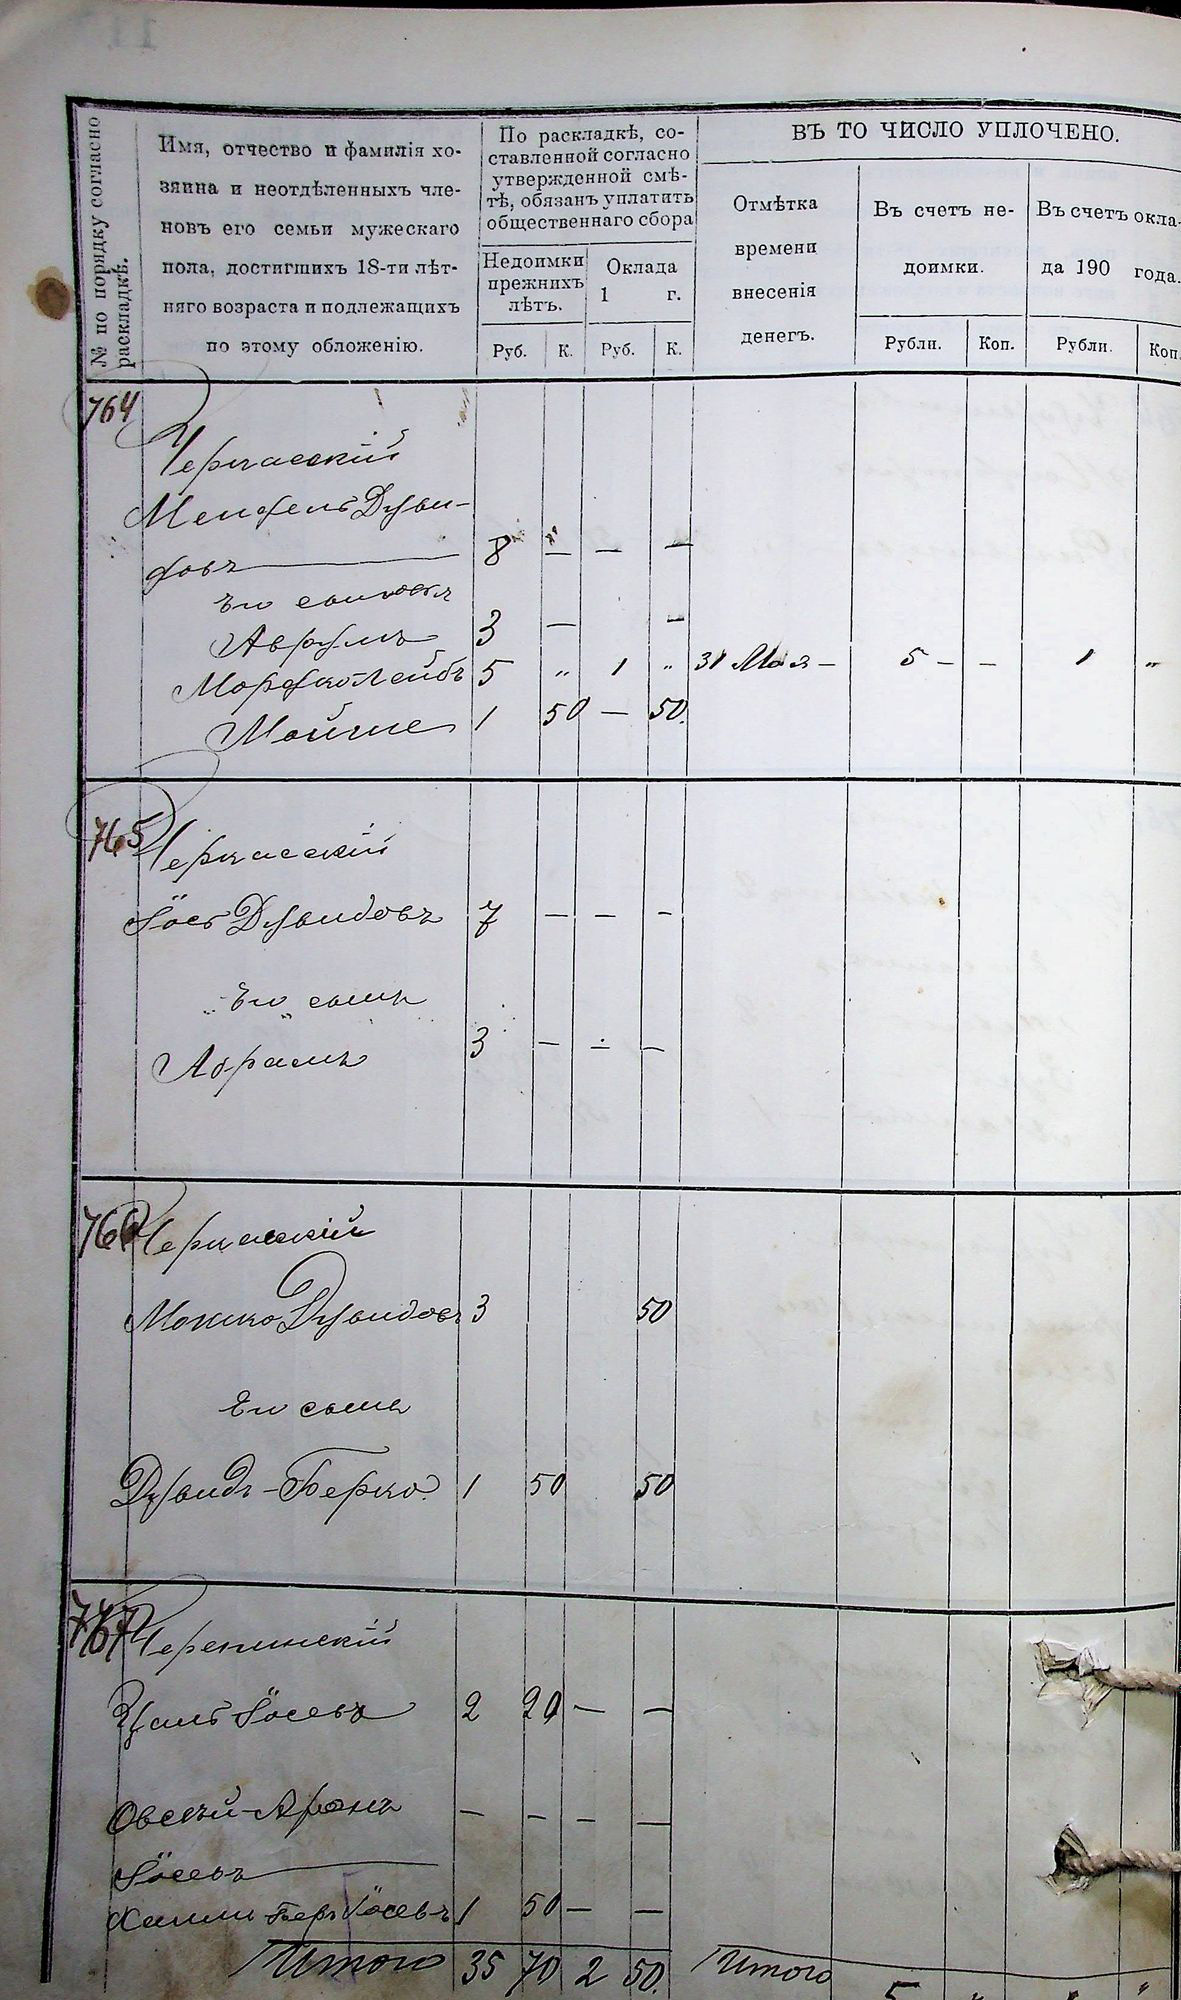 № по порядку согласно
раскладкѣ.
Имя, отчество и фамилія хо-
зяина и неотдѣленныхъ чле-
новъ его семьи мужескаго
пола, достигшихъ 18-ти лѣт-
няго возраста и подлежащихъ
по этому обложенію.
По раскладкѣ, со-
ставленной согласно
утвержденной смѣ-
тѣ, обязанъ уплатить
общественнаго сбора
Недоимки
прежнихъ
лѣтъ.
Оклада
1 г.
Руб. К. Руб. К.
ВЪ ТО ЧИСЛО УПЛОЧЕНО.
Отмѣтка
времени
внесенія
денегъ.
Въ счетъ не-
доимки.
Рубли. Коп.
Въ счетъ окла-
да 190 года.
Рубли. Коп.
764
Черкасскій
Мендель Дуви-
довъ 8 — — —
Его сыновья
Аврумъ 3 — —
Мордко Лейбъ 5 „ 1 „ 31 Мая — 5 — — 1 „
Мойше 1 50 — 50.
765 Черкасскій
Іось Дувидовъ 7 — — —
Его сынъ
Абрамъ 3 — — —
766 Черкасскій
Мошко Дувидовъ 3 50
Его сынъ
Дувидъ-Берко. 1 50 50
767 Черепинскій
Іосевъ 2 20 — —
Овсей-Аронъ — — — —
Іосевъ
Іосевъ 1 50 — —
Итого 35 70 2 50. Итого 5 „ „ „